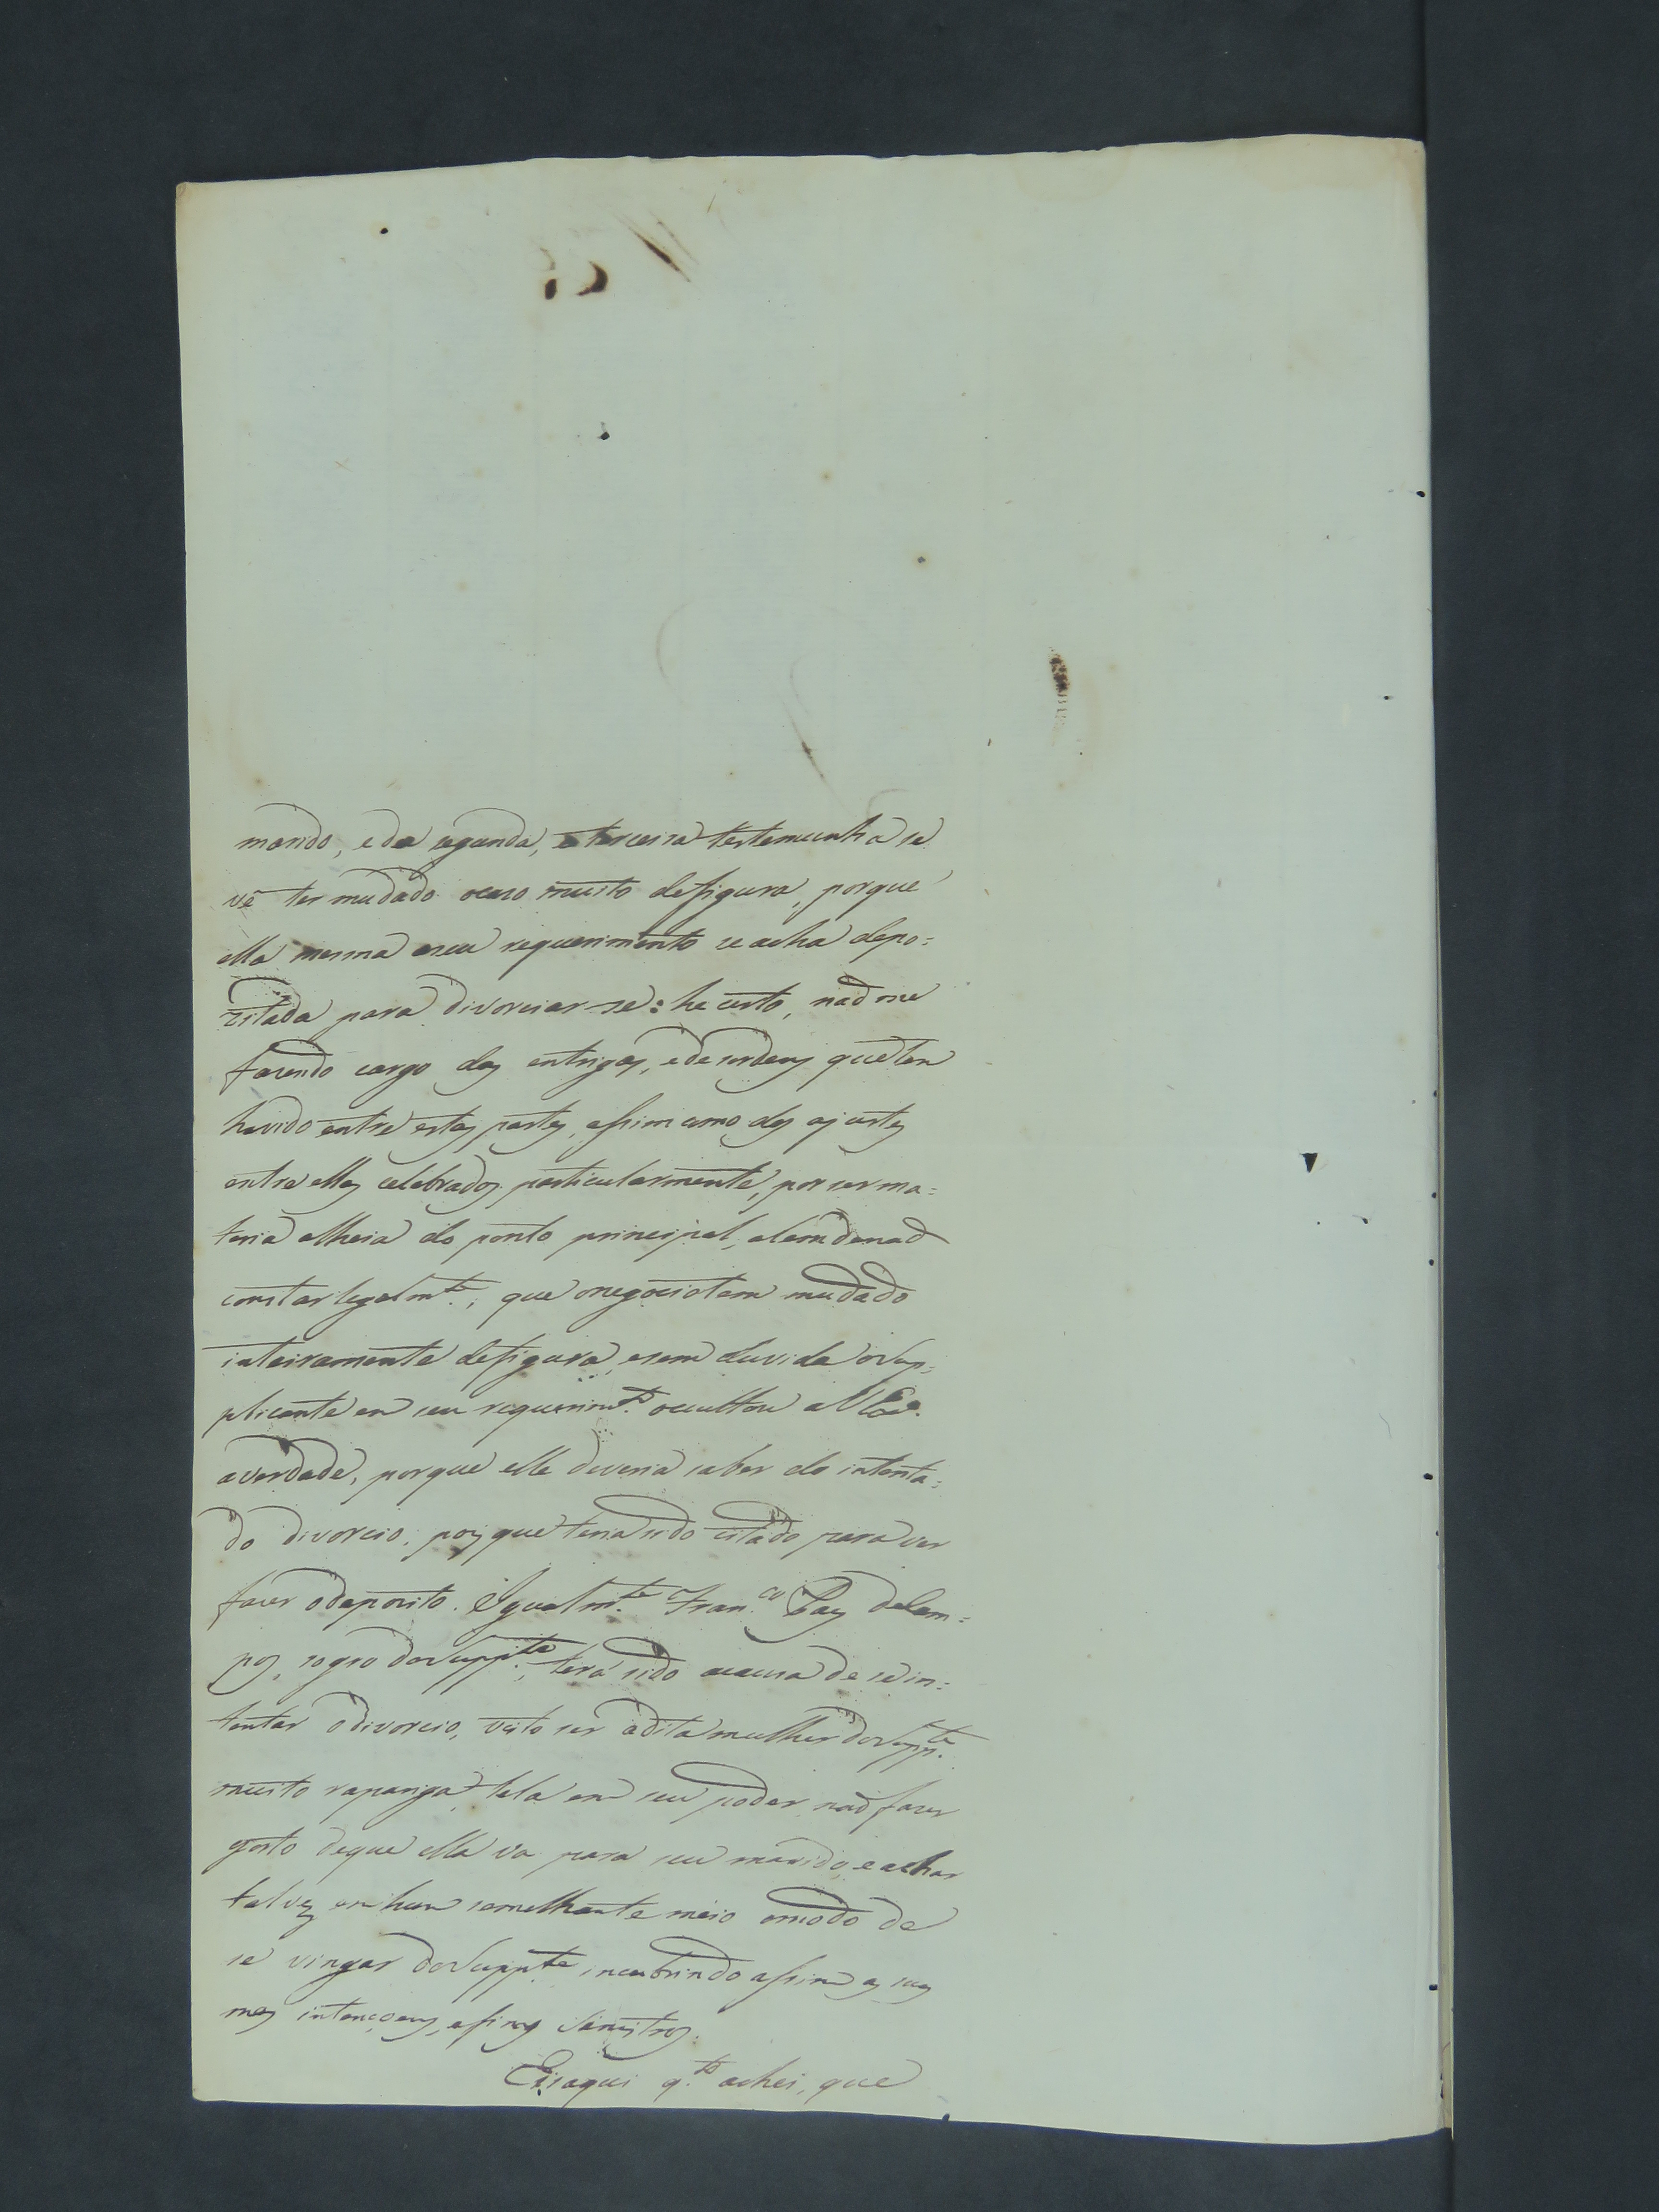 marido, e da segunda, e terceira testemunha se
vê ter mudado ocaso muito defigura, porque
ella mesma aseu requerimento se acha depo=
zitada para divorciar-se: he certo, naõ me
fazendo cargo das entrigas, edesordens quetem
havido entre estas partes, assim como dos ajustes
entre elles celebrados particularmente, por ser ma=
teria alheia do ponto principal, alem denaõ
constar legalmte., que onegocio tem mudado
inteiramente defigura, esem duvida oSup=
plicante em seu requerimto. occultou a V Exa.
averdade, porque elle deveria saber do intenta=
do divorcio, pois que teria sido citado para ver
fazer odeposito. Igualmte. Franco. Paes deCam=
pos, sogro doSuppte., terá sido acausa de se in=
tentar odivorcio, visto ser adita mulher doSuppte.
muito rapariga, tela em seu poder, naõ fazer
gosto deque ella vá para seu marido, e achar
talvez em hum semelhante meio omodo de
se vingar doSuppte. incubrindo assim as suas
mas intençoens, efins sinistros.
Eisaqui qto. achei, que